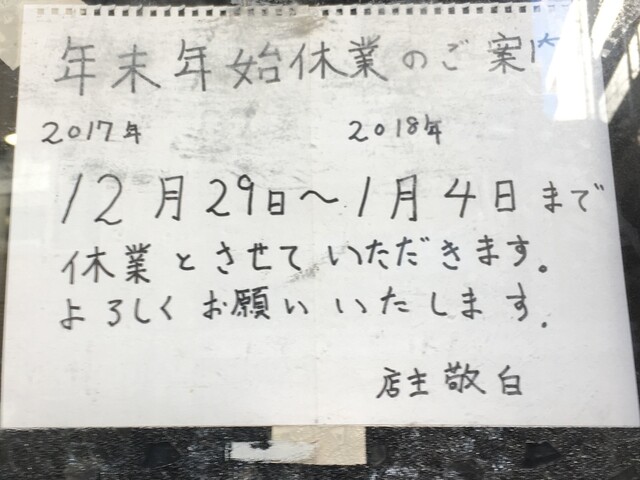 年末年始休業のご案内
2017年 2018年
12月29日〜1月4日まで
休業とさせていただきます。
よろしくお願いいたします.
店主 敬白